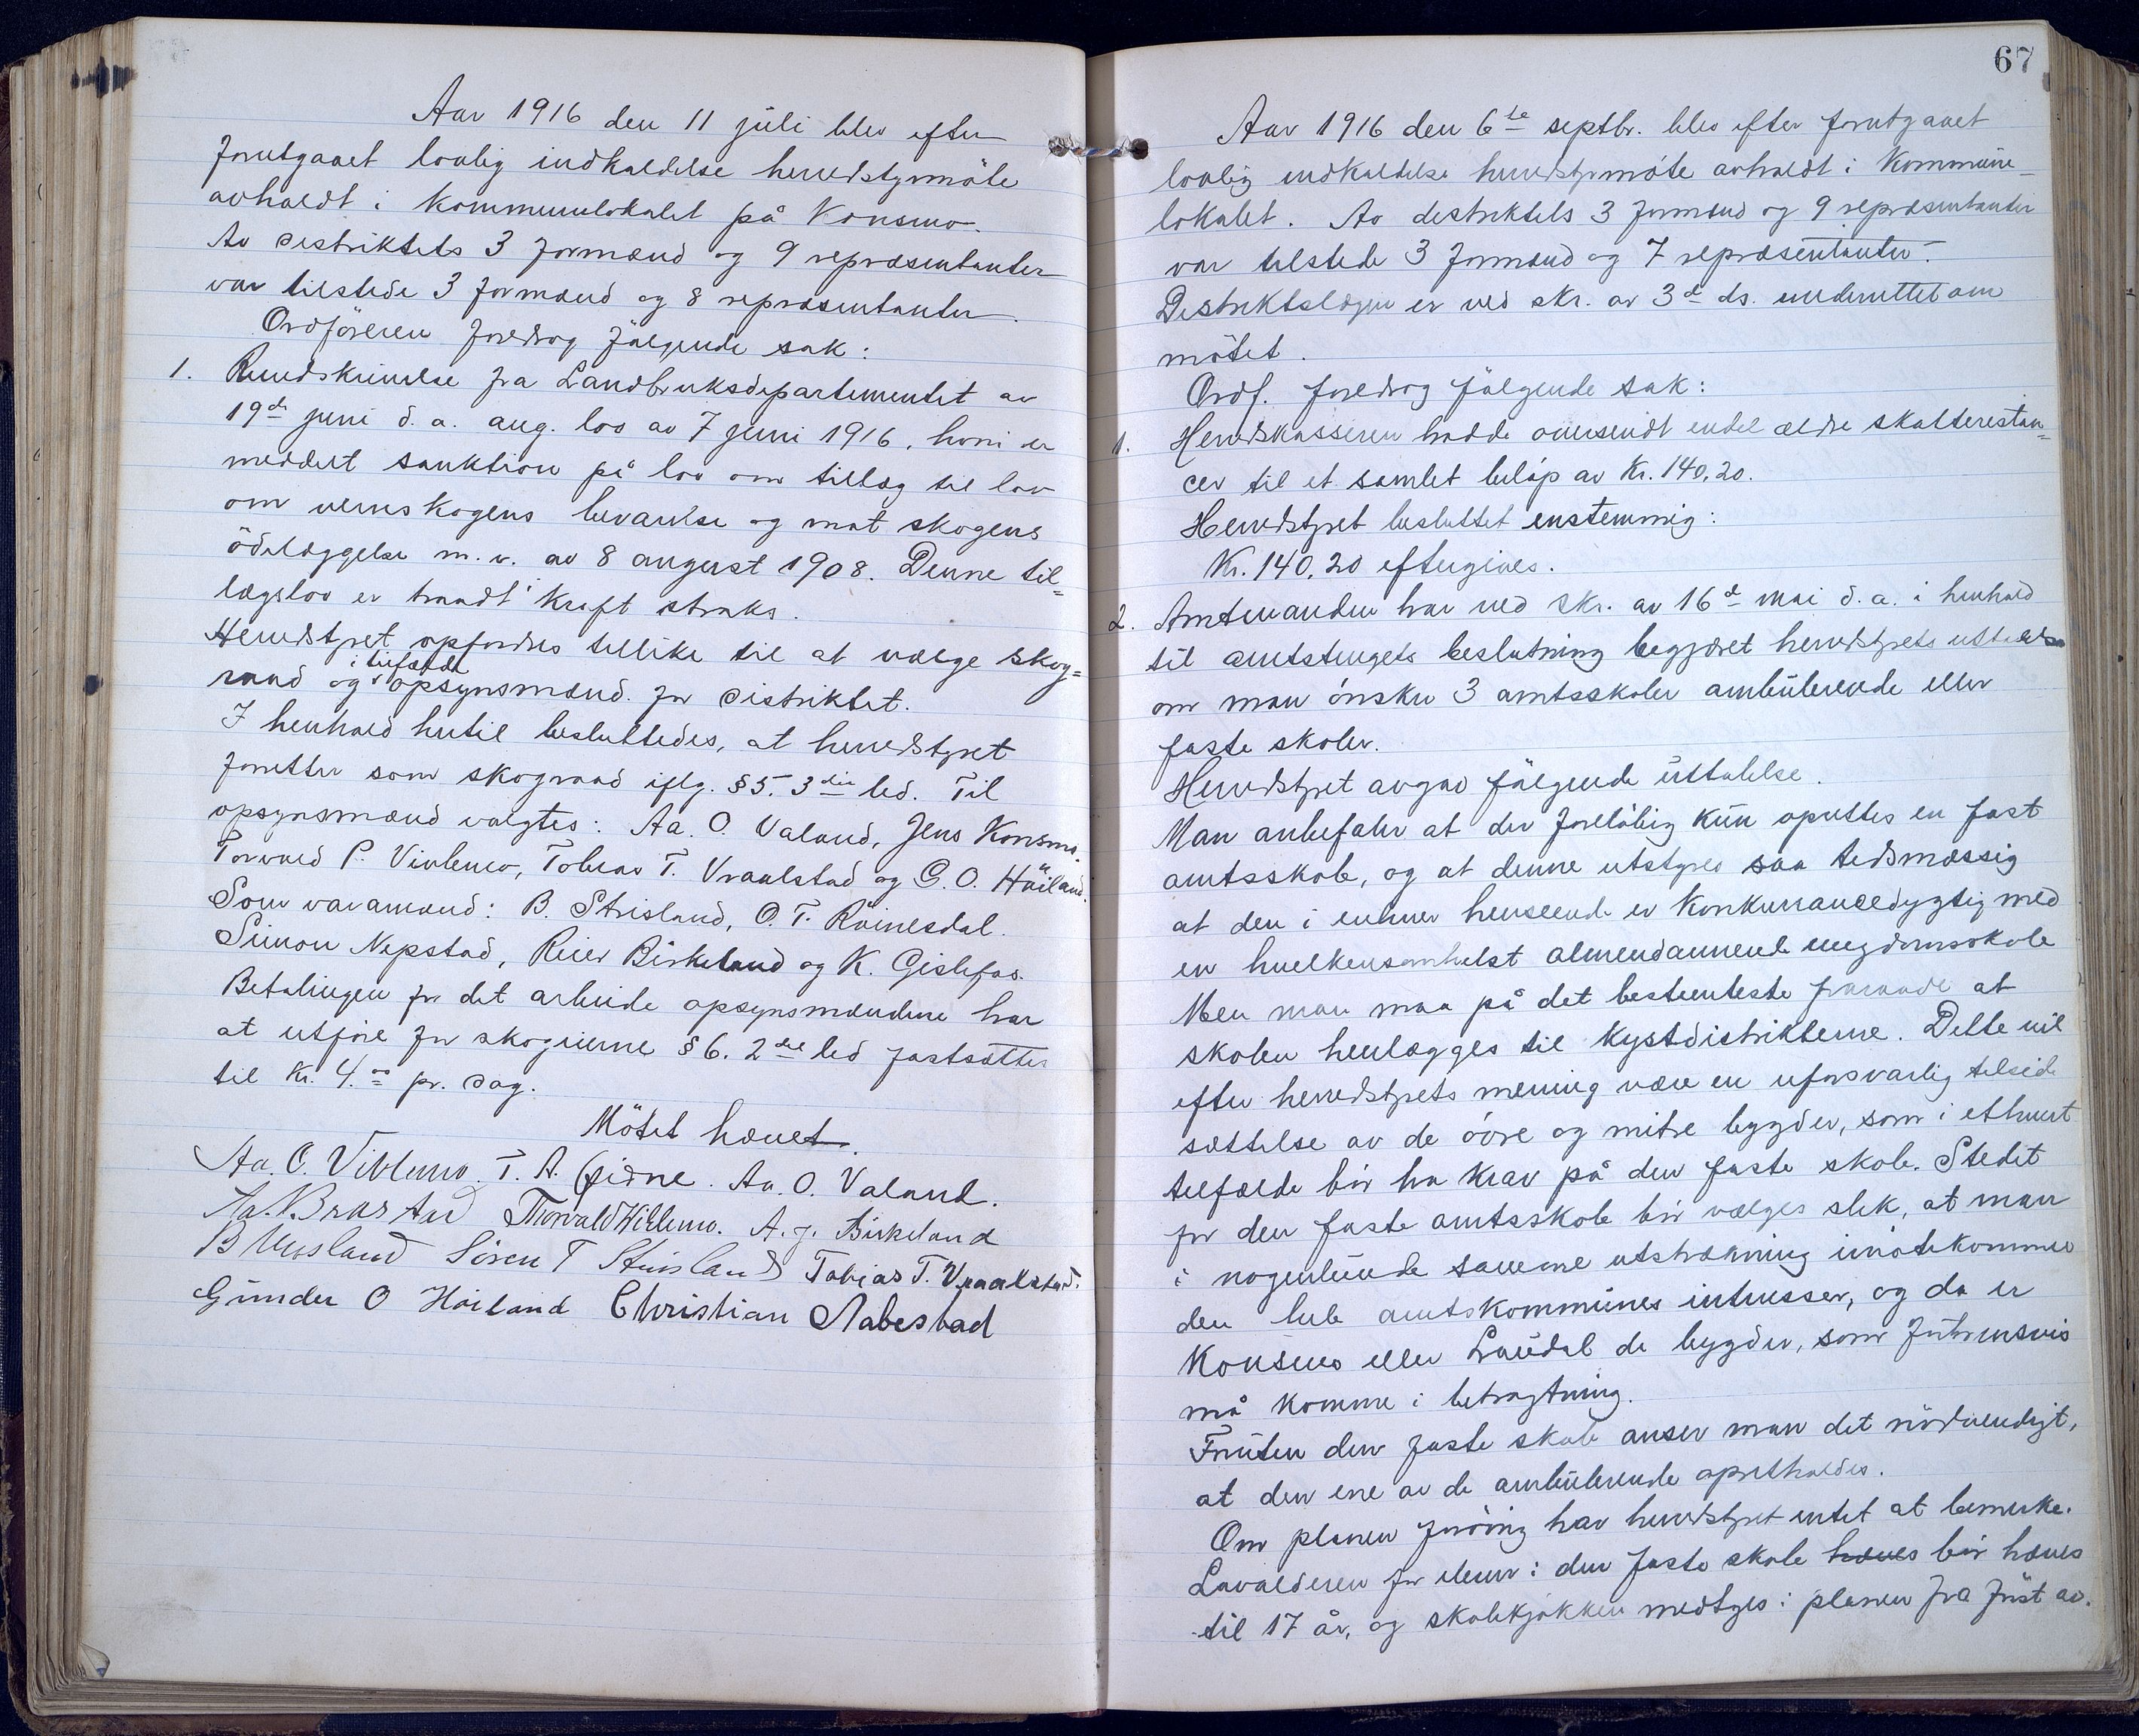 Aar 1916 den 11 juli blev efter
forutgaaet lovlig indkaldelse herredstyrmöte
avholdt i kommunelokalet på Konsmo.
Av distriktets 3 formænd og 9 repræsentanter
var tilstede 3 formænd og 8 repræsentanter.
Ordföreren foredrog følgende sak:
1. Rundskrivelse fra Landbruksdepartementet av
19de juni d. a. ang. lov av 7 juni 1916, hvori er
meddelt sanktion på lov om tillæg til lov
om vernskogens bevarelse og mot skogens
ödelæggelse m. v. av 8 august 1908. Denne til=
lægslov er traadt i kraft straks.
Herredstyret opfordres tillike til at vælge skog=
i tilfælde
raad og opsynsmænd for distriktet.
I henhold hertil besluttedes, at herredstyret
forretter som skograad iflg. § 5. 3die led. Til
opsynsmænd valgtes: Aa. O. Valand, Jens Konsmo.
Torvald P. Viblemo, Tobias T. Vraalstad og G. O. Höiland.
Som varamænd: B. Strisland, O. T. Röinesdal.
Simon Nepstad, Reier Birkeland og K. Gislefos.
Betalingen for det arbeide opsynsmændene har
at utföre for skogeierne § 6. 2det led fastsættes
til kr. 4.00 pr. dag.
Mötet hævet.
Aa. O. Viblemo. T. A. Eidne. Aa. O. Valand.
Aa. N. Brastad Thorvald Viblemo. A. J. Birkeland
B Unsland Sören T Stuisland Tobias T. Vraalstad.
Gunder O Høiland Christian Aabestad
67
Aar 1916 den 6te septbr. blev efter forutgaaet
lovlig indkaldelse herredstyrmöte avholdt i kommune-
lokalet. Av distriktets 3 formænd og 9 repræsentanter
var tilstede 3 formænd og 7 repræsentanter.
Distriktslægen er ved skr. av 3de ds. underrettet om
mötet.
Ordf. foredrog følgende sak:
1. Herredskasseren hadde oversendt endel ældre skatterestan=
cer til et samlet belöp av Kr. 140,20.
Herredstyret besluttet enstemmig:
Kr. 140,20 eftergives.
2. Amtmanden har ved skr. av 16de mai d. a. i henhold
til amtstingets beslutning begjæret herredstyrets uttalelse
om man önsker 3 amtsskoler ambulerende eller
faste skoler.
Herredstyret avgav følgende uttalelse.
Man anbefaler at der foreløbig kun oprettes en fast
amtsskole, og at denne utstyres saa tidsmæssig
at den i enhver henseende er konkurrancedygtig med
en hvilkensomhelst almendannende ungdomsskole
Men man maa på det bestemteste fraraade at
skolen henlægges til kystdistrikterne. Dette vil
efter herredstyrets mening være en uforsvarlig tilside
sættelse av de övre og mitre bygder, som i ethvert
tilfælde bör ha krav på den faste skole. Stedet
for den faste amtsskole bör vælges slik, at man
i nogenlunde samme utstrækning imötekommer
den hele amtskommunes interesser, og da er
Konsmo eller Laudal de bygder, som fortrinsvis
må komme i betragtning.
Foruten den faste skole anser man det nödvendigt,
at den ene av de ambulerende oprettholdes.
Om planen forövrig har herredstyret intet at bemerke.
Lavalderen for elever i den faste skole hæves bör hæves
til 17 år, og skolekjøkken medtages i planen fra först av.